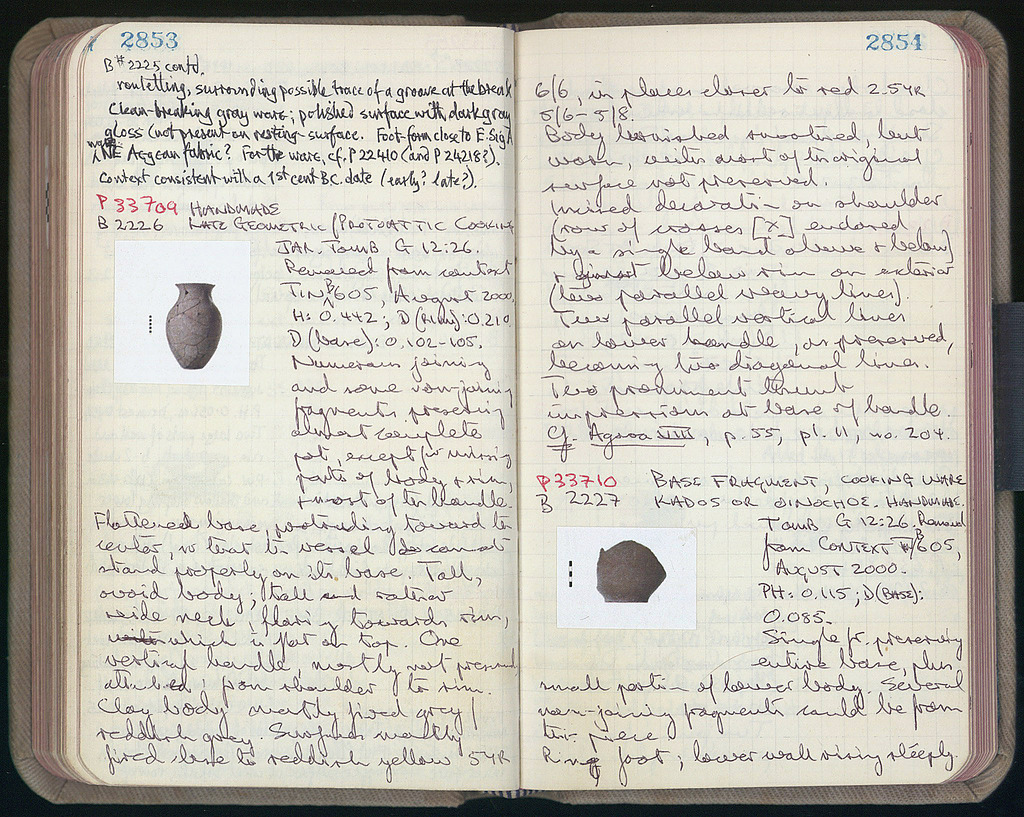 2853
B # 2225 contd.
rouletting, surrounding possible trace of a groove at the break
Clean-breaking gray ware; polished surface with dark gray
gloss (not present on resting surface. Foot-form close to E. Sig A
NE Aegean fabric? For the ware, cf. P 22410 (and P 24218?).
Context consistent with a 1st cent BC. date (early? late?).
P 33709 HANDMADE
B 2226 LATE GEOMETRIC / PROTOATTIC COOKING
JAR. TOMB G 12:26.
Removed from context
605, August 2000.
H: 0.442; D (rim): 0.210.
D (base): 0.102-105.
Numerous joining
and some non-joining
fragments preserving
almost complete
pot, except for missing
parts of body & rim,
& most of the handle.
Flattened base, protruding toward the
center, so that the vessel does not
stand properly on its base. Tall,
ovoid body; tall and rather
wide neck, flaring towards rim,
which is flat on top. One
vertical handle, mostly not preserved
attached from shoulder to rim.
Clay body mostly fired grey /
reddish grey. Surface mostly
fired close to reddish yellow 5YR
2854
6/6, in places closer to red 2.5YR
5/6-5/8.
Body burnished smoothed, but
worn, with most of the original
surface not preserved.
Incised decoration on shoulder
(row of crosses [X] enclosed
by a single band above & below)
& just below rim on exterior
(two parallel wavy lines).
Two parallel vertical lines
on lower handle, as preserved,
becoming two diagonal lines.
Two prominent thumb
impressions at base of handle.
Cf. Agora VIII, p. 55, pl. 11, no. 204.
P 33710 BASE FRAGMENT, COOKING WARE
B 2227 KADOS OR OINOCHOE. HANDMADE.
TOMB G 12:26. Removed
from CONTEXT 605,
AUGUST 2000.
PH: 0.115; D (BASE):
0.085.
Single fr. preserving
entire base, plus
small portion of lower body. Several
non-joining fragments could be from
this piece.
Ring foot; lower wall rising steeply.